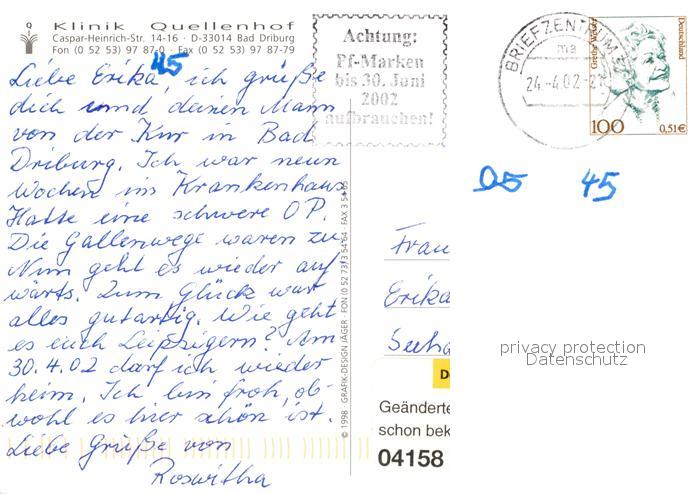 Klinik Quellenhof
Caspar-Heinrich-Str. 14-16 · D-33014 Bad Driburg
Fon (0 52 53) 97 87-0 · Fax (0 52 53) 97 87-79
45
Liebe Erika, ich grüße
dich und deinen Mann
von der Kur in Bad
Driburg. Ich war neun
Wochen im Krankenhaus
Hatte eine schwere OP.
Die Gallenwege waren zu
Nun geht es wieder auf
wärts. Zum Glück war
alles gutartig. Wie geht
es euch Leipzigern? Am
30.4.02 darf ich wieder
heim. Ich bin froh, ob-
wohl es hier schön ist.
Liebe Grüße von
Roswitha
© 1998 GRAFIK-DESIGN JÄGER · FON (0 52 73) 3 54 64 · FAX 3 54 65
Achtung:
Pf-Marken
bis 30. Juni
2002
aufbrauchen!
BRIEFZENTRUM
ma
24.-4.02-
Grethe Weiser
Deutschland
100
0,51€
95 45
Frau
Erika
privacy protection
Datenschutz
Geänderte
schon bek
04158